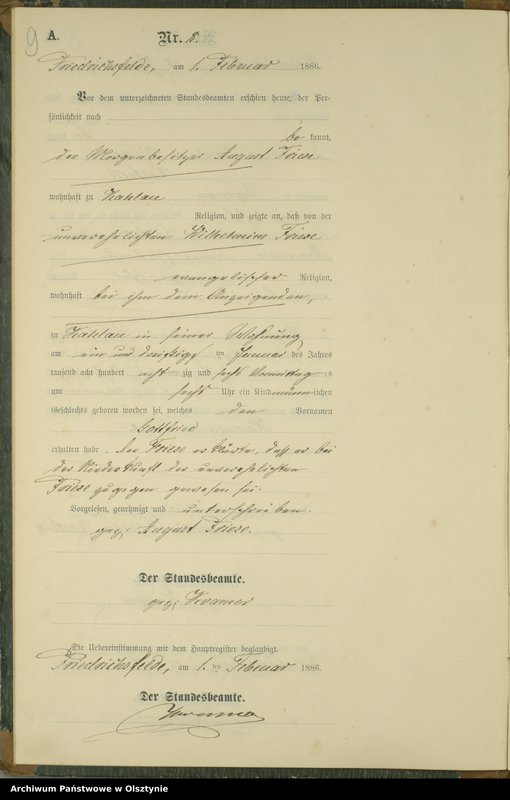 9
A.
Nr. 8.
Friedrichsfelde, am 1. Februar 1886.
Vor dem unterzeichneten Standesbeamten erschien heute, der Per-
sönlichkeit nach
be kannt,
der Morgenbesitzer August Friese
wohnhaft zu
Religion, und zeigte an, daß von der
unverehelichten Wilhelmine Friese
evangelischer Religion,
wohnhaft bei ihm dem Anzeigenden,
zu in seiner Wohnung
am ein und dreißig ten Januar des Jahres
tausend acht hundert acht zig und sechs Vormittag s
um sechs Uhr ein Kind männ lichen
Geschlechts geboren worden sei, welches den Vornamen
Gottfried
erhalten habe. Der Friese erklärte, daß er bei
der Niederkunft der unverehelichten
Friese zugegen gewesen sei.
Vorgelesen, genehmigt und unterschrieben.
gez: August Friese.
Der Standesbeamte.
gez:
Die Uebereinstimmung mit dem Hauptregister beglaubigt.
Friedrichsfelde, am 1. ten Februar 1886.
Der Standesbeamte.
Archiwum Państwowe w Olsztynie